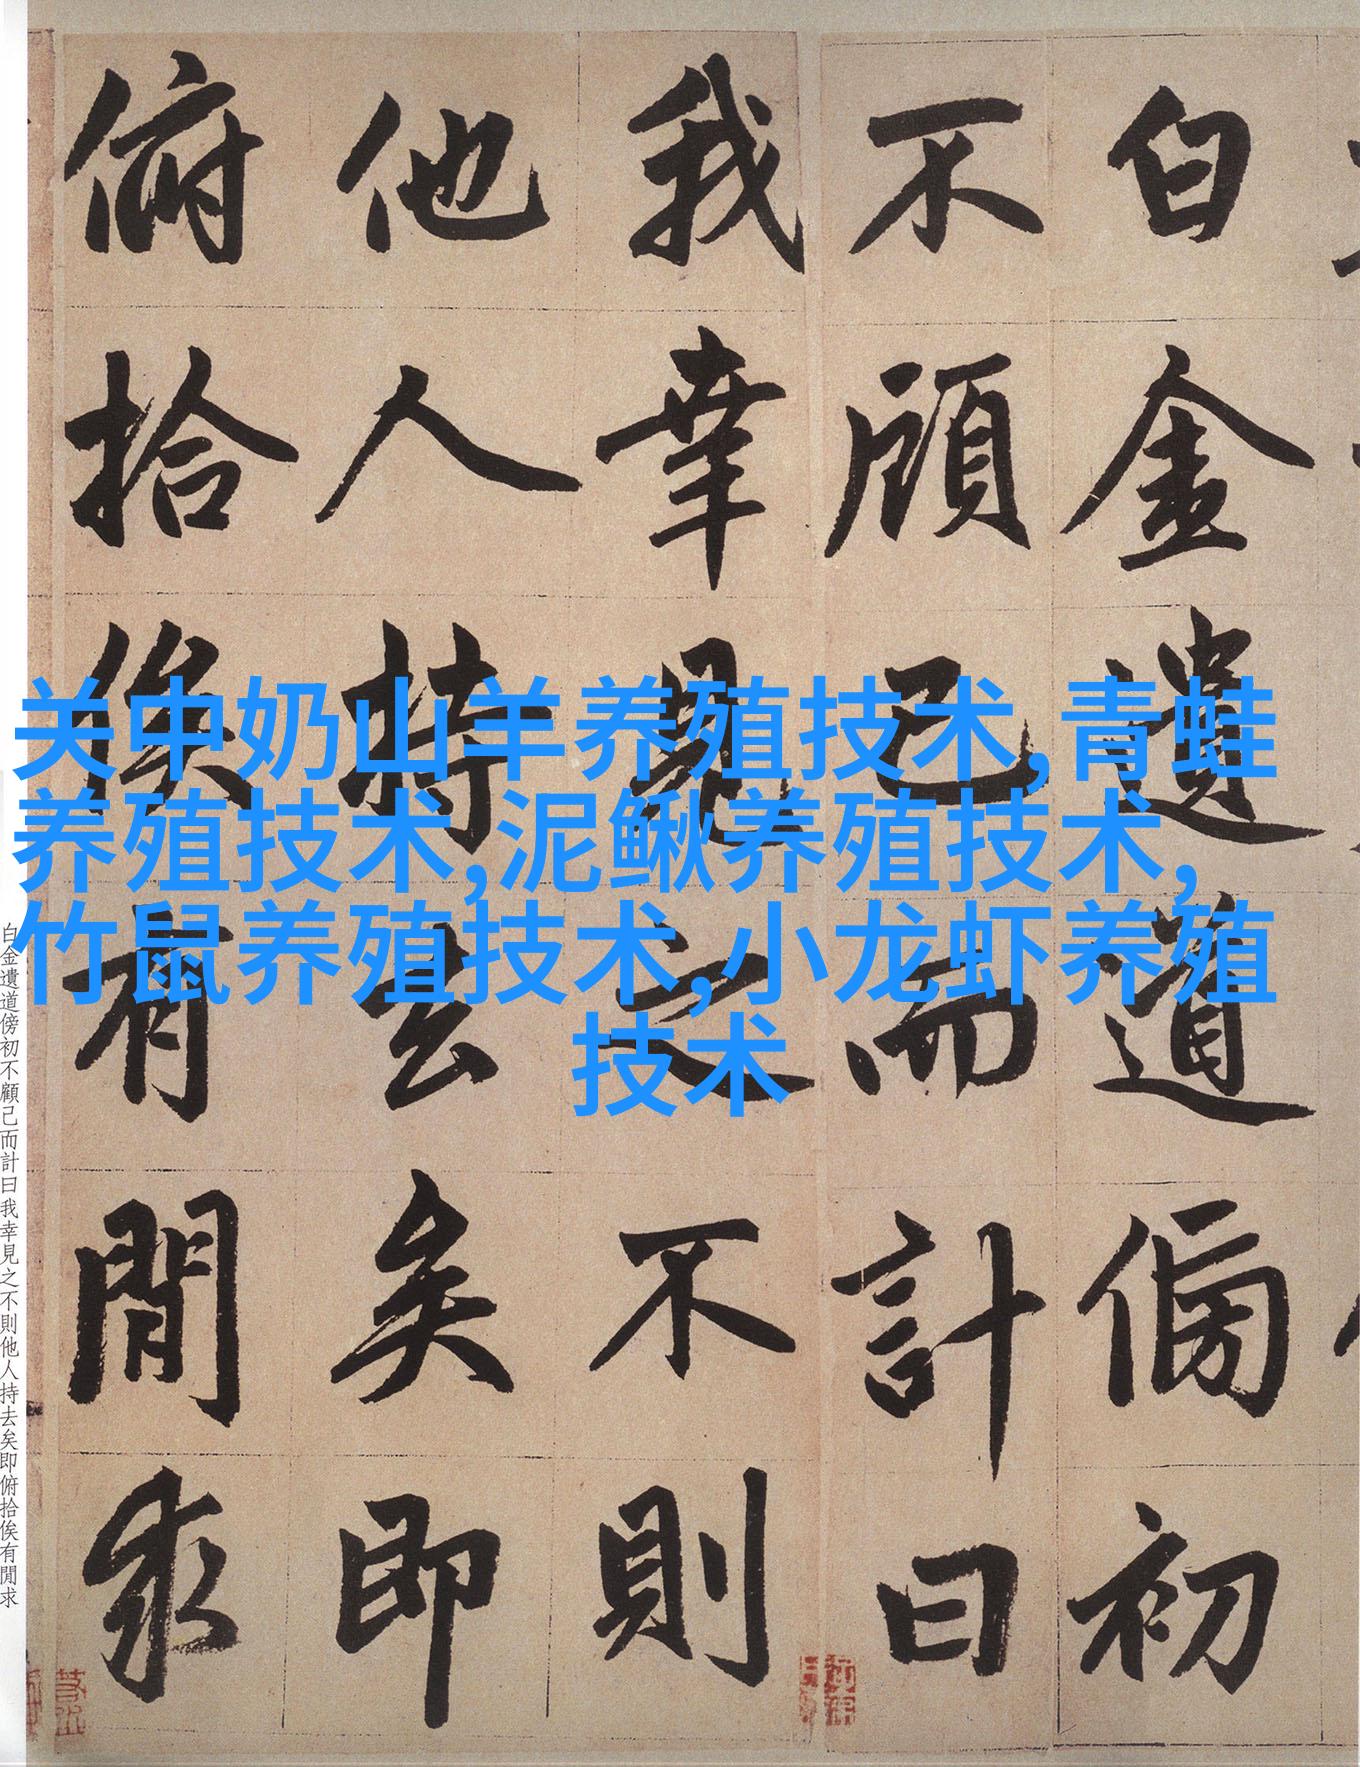 白金遺道傍初
不顧己而計曰
我幸見之不則
他人持去矣即
俯拾俟有閒求
关中奶山羊养殖技术,青蛙
养殖技术,泥鳅养殖技术,
竹鼠养殖技术,小龙虾养殖
技术
白金遺道傍初不顧己而計曰我幸見之不則他人持去矣即俯拾俟有閒求